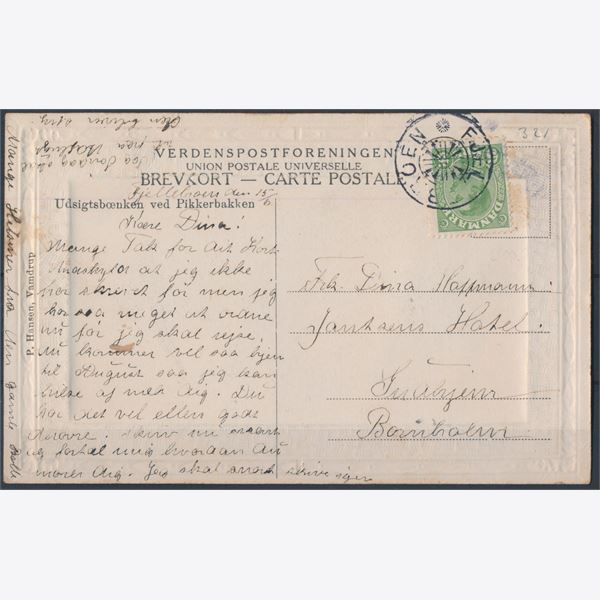 321
VERDENSPOSTFORENINGEN
UNION POSTALE UNIVERSELLE
BREVKORT — CARTE POSTALE
Fjellebroen den 15/
Udsigtsbœnken ved Pikkerbakken
Kære Dina!
Mange Tak for dit Kort
at jeg ikke
har skrevet før men jeg
har saa meget at ordne
nu før jeg skal rejse.
nu kommer vel saa hjem
til August saa jeg kan
hilse af med dig. Du
har det vel ellers godt
derovre. skriv nu snart
og fortæl mig hvordan du
morer dig. Jeg skal snart skrive igen
Frk. Dina Hoffmann.
Jantzens Hotel.
Gudhjem
Bornholm
P. Hansen, Vamdrup
Mange Hilsner fra din gamle
DANMARK
BROEN
FJEL